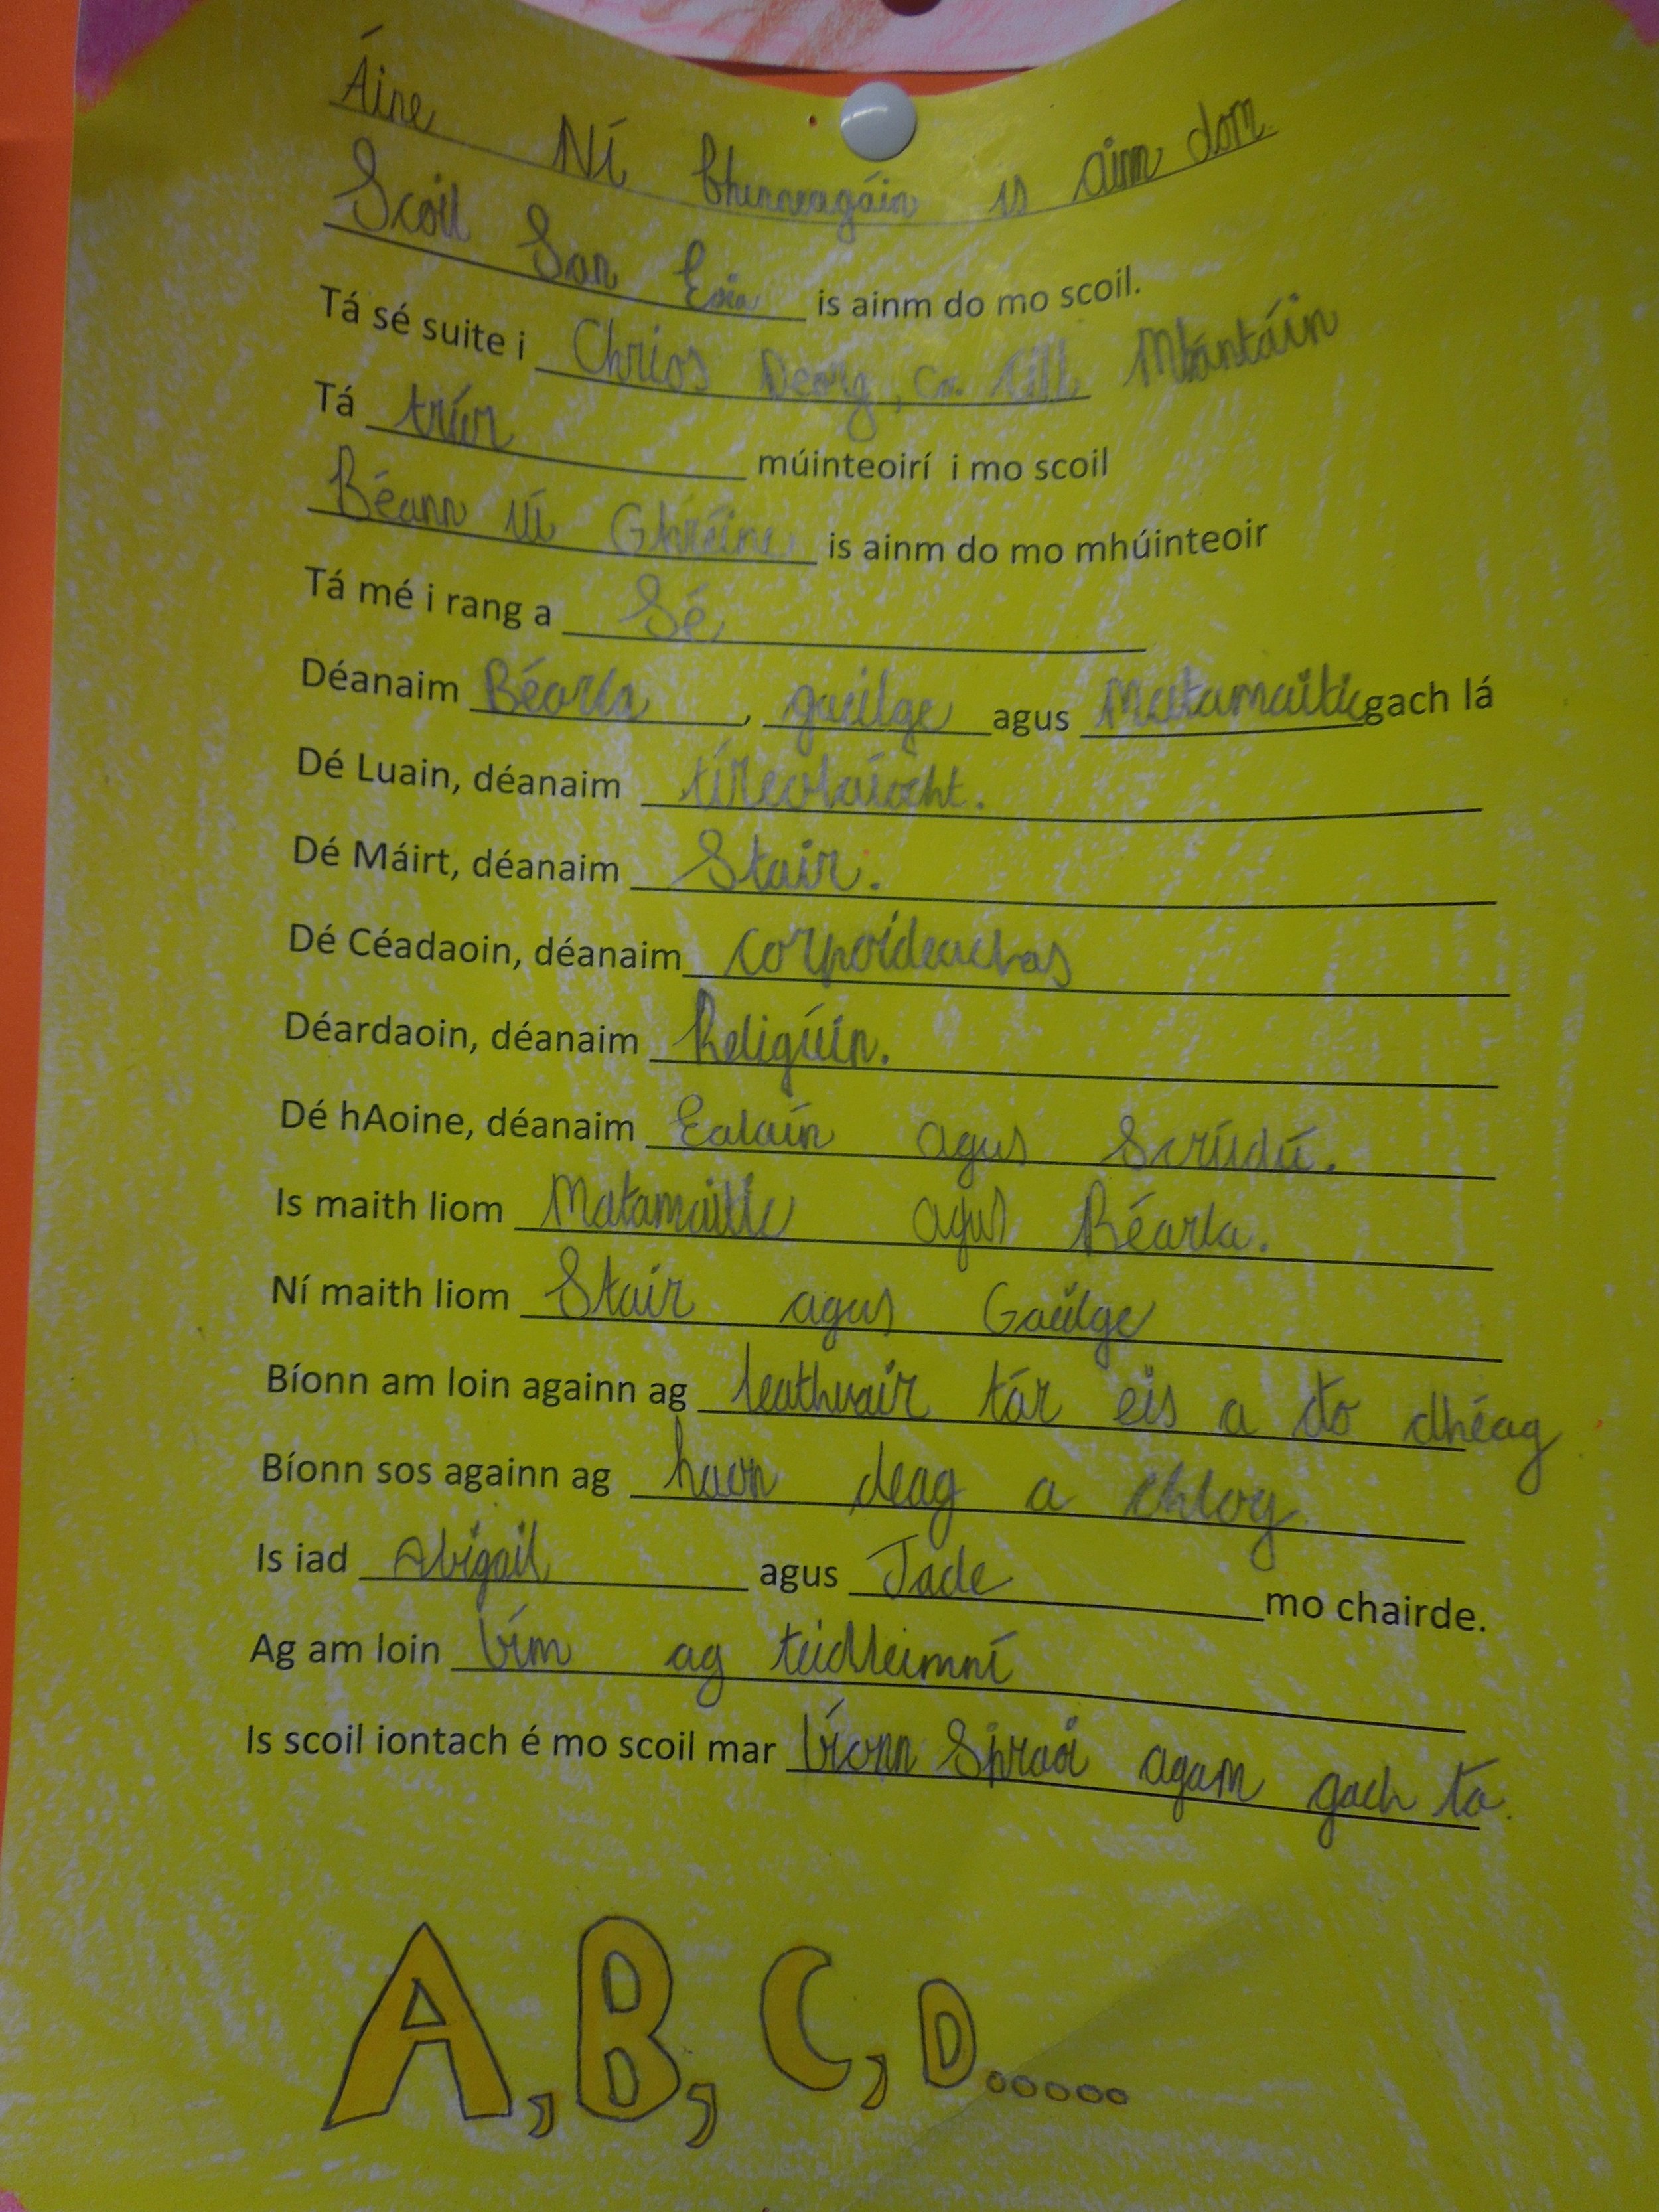 Áine Ní Bhinneagáin is ainm dom
Scoil San Eoin is ainm do mo scoil.
Tá sé suite i Chrios Dearg, Co. Cill Mhántáin
Tá triúr múinteoirí i mo scoil
Béann Uí Ghréine is ainm do mo mhúinteoir
Tá mé i rang a Sé
Déanaim Béarla, gaeilge agus Matamaitic gach lá
Dé Luain, déanaim tíreolaíocht.
Dé Máirt, déanaim Stair.
Dé Céadaoin, déanaim corpoideachas
Déardaoin, déanaim Religiúin.
Dé hAoine, déanaim Ealaín agus Scrúdú.
Is maith liom Matamaitic agus Béarla.
Ní maith liom Stair agus Gaeilge
Bíonn am loin againn ag leathuair tár eis a do dhéag
Bíonn sos againn ag haon deag a chlog
Is iad Abigail agus Jade mo chairde.
Ag am loin bím ag teidléimní
Is scoil iontach é mo scoil mar bíonn Spraoi agam gach la.
A, B, C, D.....